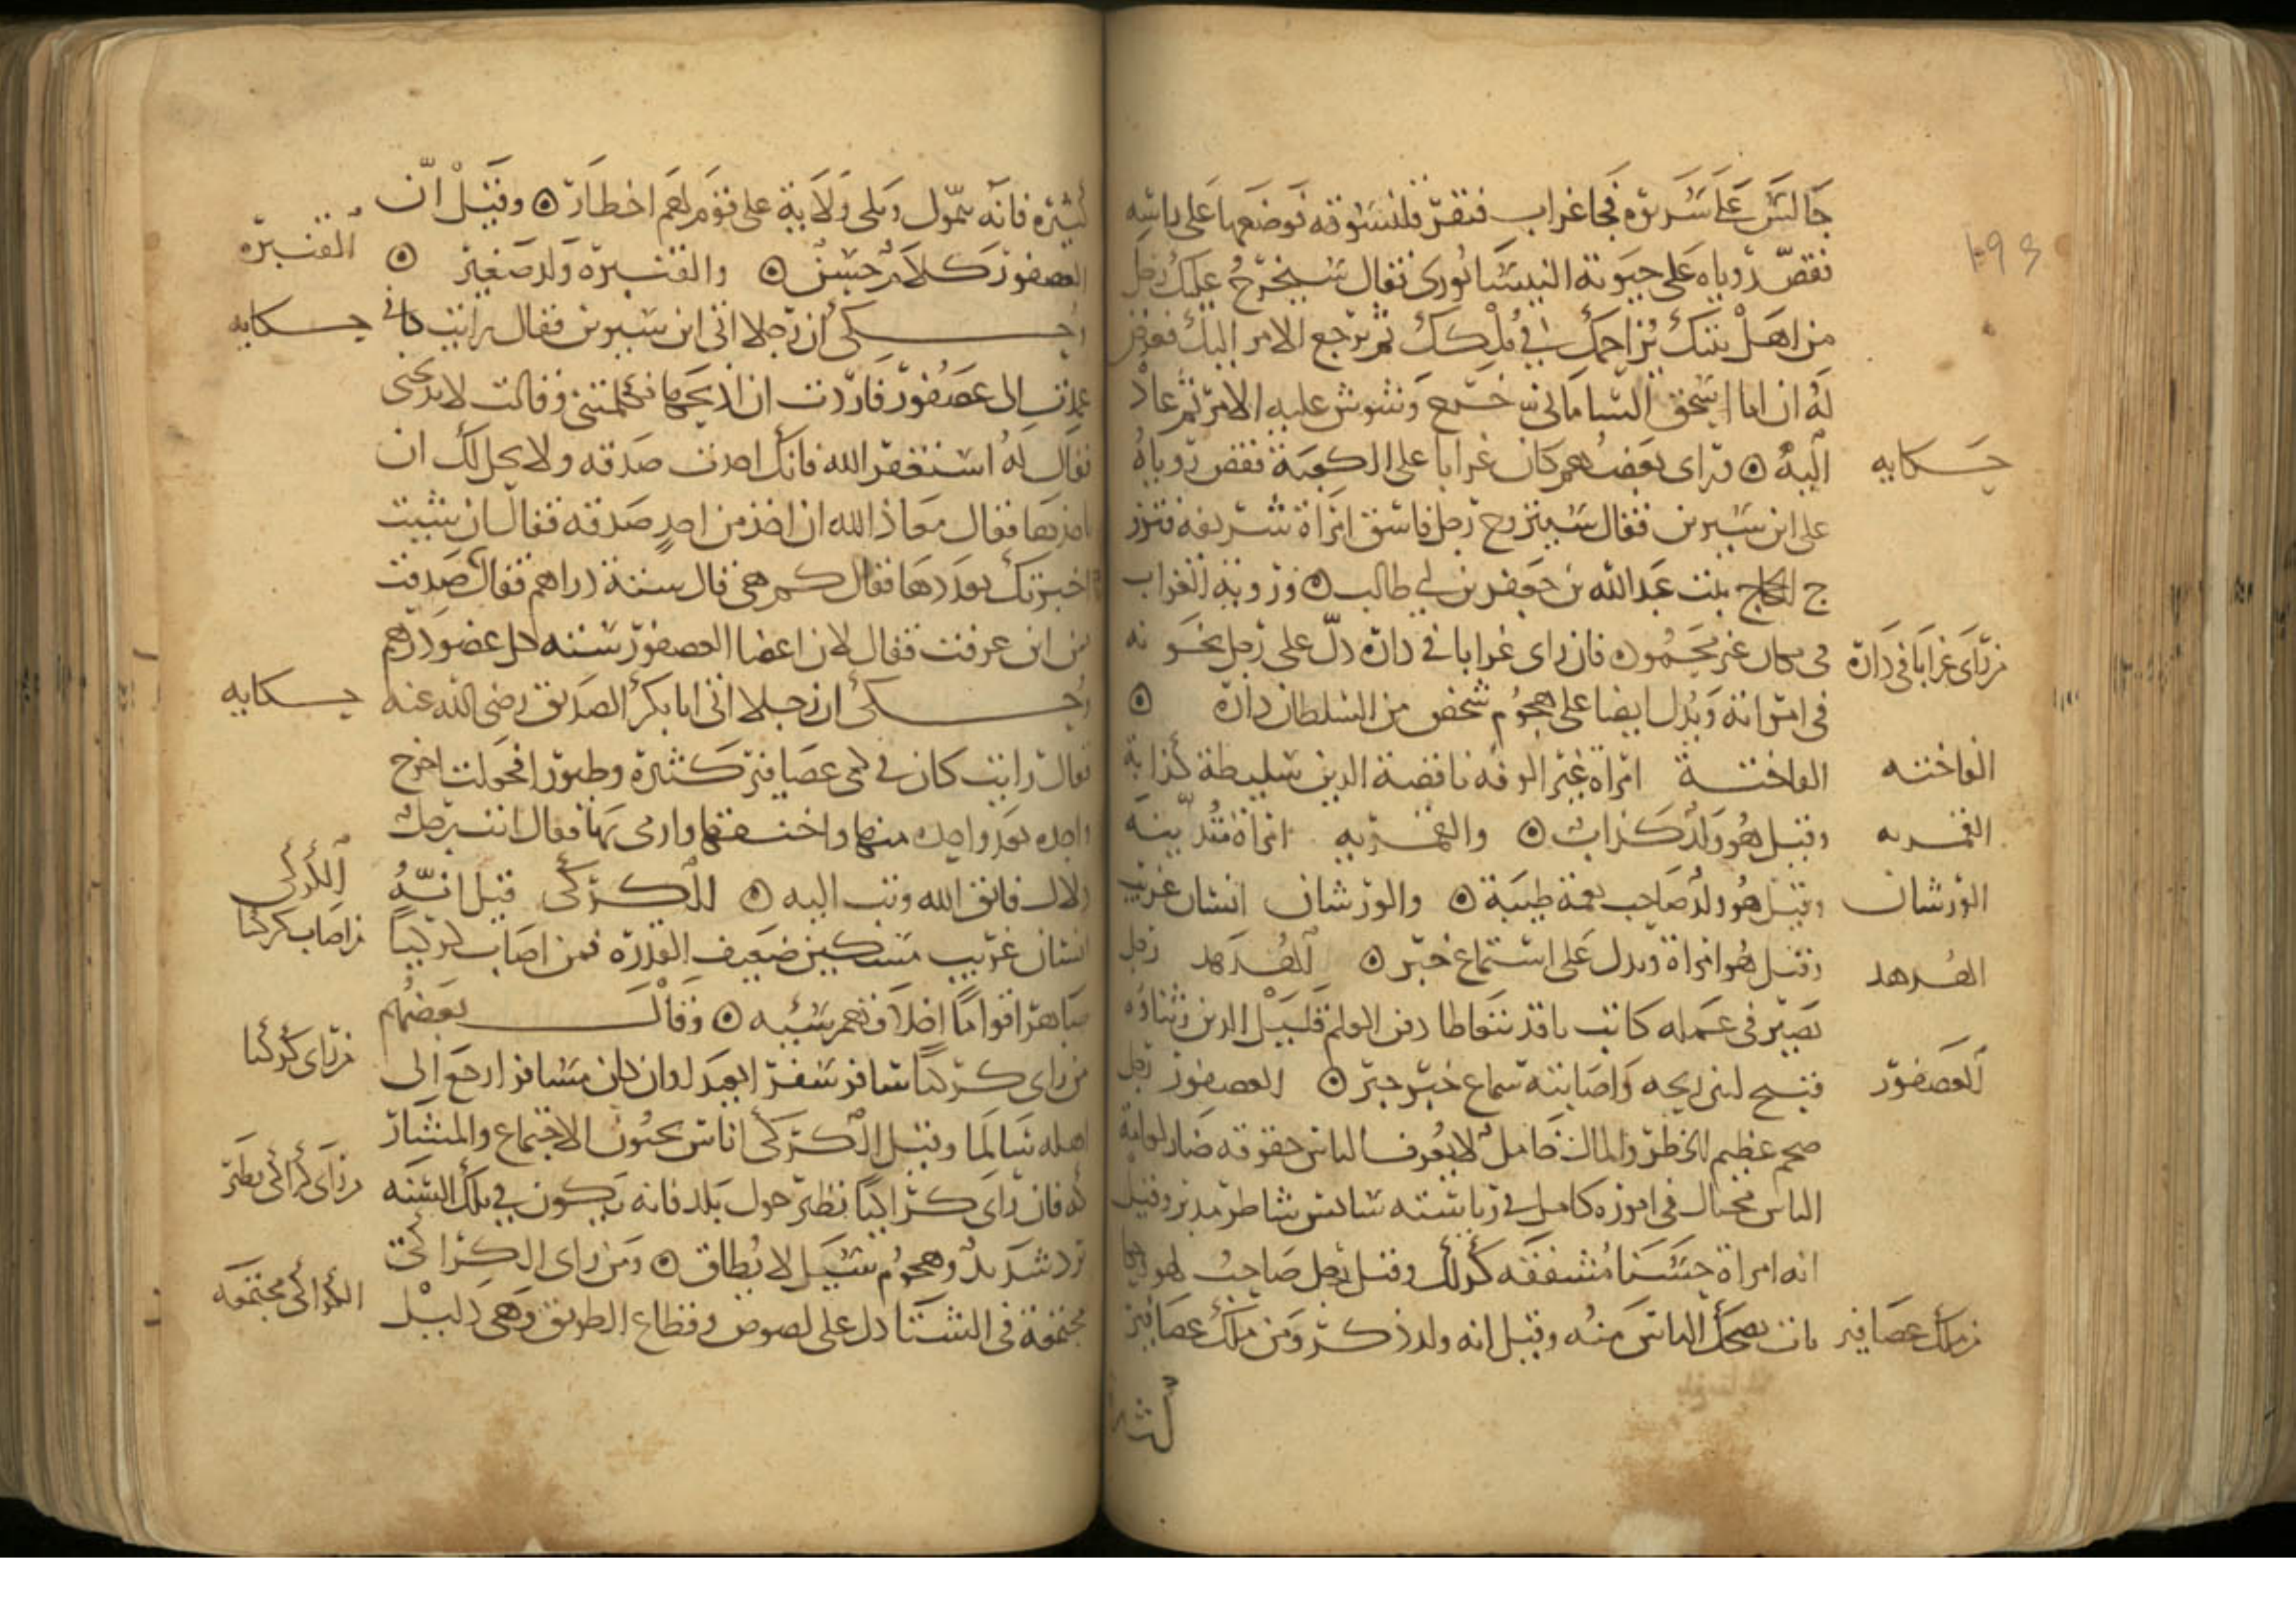 جالس على سريره فجا غراب فنقر قلنسوته فوضعها على راسه
فقص روياه على حيوته النيسابورى فقال سيخرج عليك رجل
من اهل بيتك يزاحمك فى ملكك ثم يرجع الامر اليك فعرض
له ان ابا اسحق السامانى خرج وشوش عليه الامر ثم عاد
حكايه
اليه ۞ وراى بعضهم كان غرابا على الكعبة فقص روياه
على ابن سيرين فقال سيتزوج رجل فاسق امراة شريفه فتزو
ج بنت عبد الله بن جعفر بن ابي طالب ۞ وروية الغراب
من راى غرابا فى داره
فى مكان غير محمود فان راى غرابا فى داره دل على رجل يخو نه
فى امراته ويدل ايضا على هجوم شخص من السلطان داره ۞
الفاخته
الفاختة امراه غير الوفه ناقصة الدين سليطة كذابة
القمريه
وقيل هو ولد كذاب ۞ والقمريه امراة متدينة
الورشان
وقيل هو ولد صاحب نغمة طيبة ۞ والورشان انسان غريب
الهدهد
وقيل هو امراة ويدل على استماع خبر ۞ الهدهد رجل
بصير فى عمله كاتب ناقد يتعاطا دقن العلم قليل الدين وثناوه
العصفور
قبيح لنتن ريحه واصابته سماع خبر خير ۞ العصفور رجل
ضخم عظيم الخطر والمال خامل لا يعرف الناس حقوقه ضار لعامة
الناس محتال فى اموره كامل فى رياسته سايس شاطر مدبر وقيل
انه امراة حسنا مشفقه وقيل رجل صاحب لهو
من ملك عصافير
يضحك الناس منه وقيل انه ولد ذكر ومن ملك عصافير
كثيره
كثيره فانه يتمول ويلى ولاية على قوم لهم اخطار ۞ وقيل ان
القنبره
العصفور كلام حسن ۞ والقنبرة ولد صغير ۞
حكايه
وحكى ان رجلا اتى ابن سيرين فقال رايت كانى
عمدت الى عصفور فاردت ان اذبحها فكلمتنى وقالت لا تذبحنى
فقال له استغفر الله فانك اخذت صدقه ولا يحل لك ان
تاخذها فقال معاذ الله ان اخذ من احد صدقه فقال ان شيت
اخبرتك بعددها فقال كم هى قال ستة دراهم فقال صدقت
من اين عرفت فقال لان اعضا العصفور سته كل عضو درهم
حكايه
وحكى ان رجلا اتى ابا بكر الصديق رضى الله عنه
فقال رايت كان فى كمى عصافير كثيرة وطيورا فجعلت اخرج
واحده بعد واحده منها واخنقها وارمى بها فقال انت رجل
الكركى
دلال فاتق الله وتب اليه ۞ الكركى قيل انه
من اصاب كركيا
انسان غريب مسكين ضعيف القدرة فمن اصاب كركيا
صاهر اقواما اخلاقهم سيه ۞ وقال بعضهم
من راى كركيا
من راى كركيا سافر سفرا بعيدا وان كان مسافرا رجع الى
اهله سالما وقيل الكركى اناس يحبون الاجتماع والمشار
من راى كراكى يطير
كه فان راى كراكيا تطير حول بلد فانه يكون فى تلك السنه
برد شديد وهجوم سيل لا يطاق ۞ ومن راى الكراكى
الكراكى مجتمعه
مجتمعة فى الشتا دل على لصوص وقطاع الطريق وهى دليل